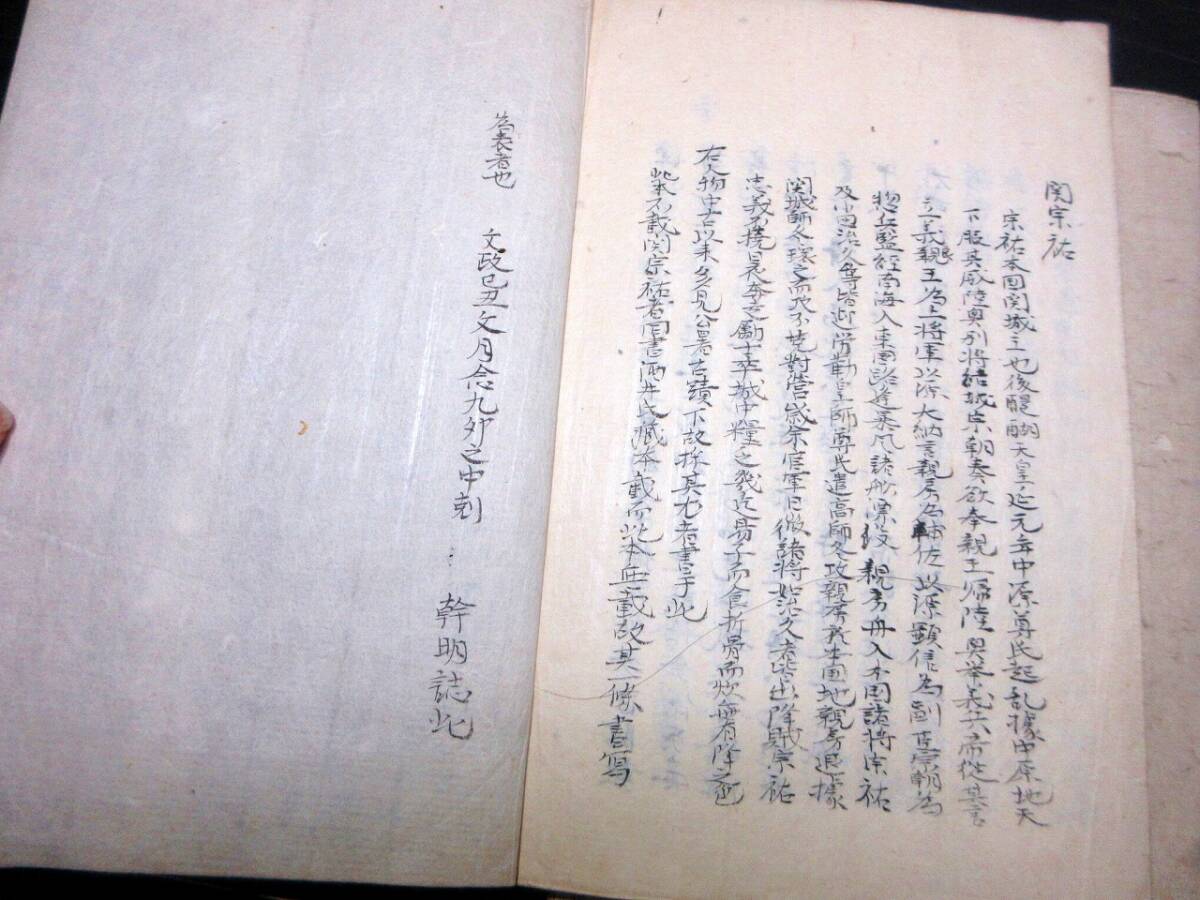 関宗祐
宗祐本国関城主也後醍醐天皇延元年中源尊氏起乱據中原地天
下服其威陸奥列将結城宗朝奏欲奉親王帰陸奥挙義兵帝従其言
立義親王為上将軍以源大納言親房為輔佐以源顕信為副宗朝為
惣兵監経南海入東国路逢暴風諸舩漂没親房舟入本国諸将宗祐
及小田治久等皆迎労勤皇師尊氏遣高師冬攻親房於本国地親房退據
関城師冬環之而攻不克對営歳余官軍日微諸将如治久者皆出降賊宗祐
忠義不撓晨夜之勵士卒城中糧乏幾迄易子而食折骨而炊無有降之色
右人物中古以来多見公署古蹟下故採其尤者書于此
此本不載関宗祐者同書酒井氏蔵本載而此本無載故其一條書寫
為表者也
文政己丑文月念九卯之中刻
幹明誌此